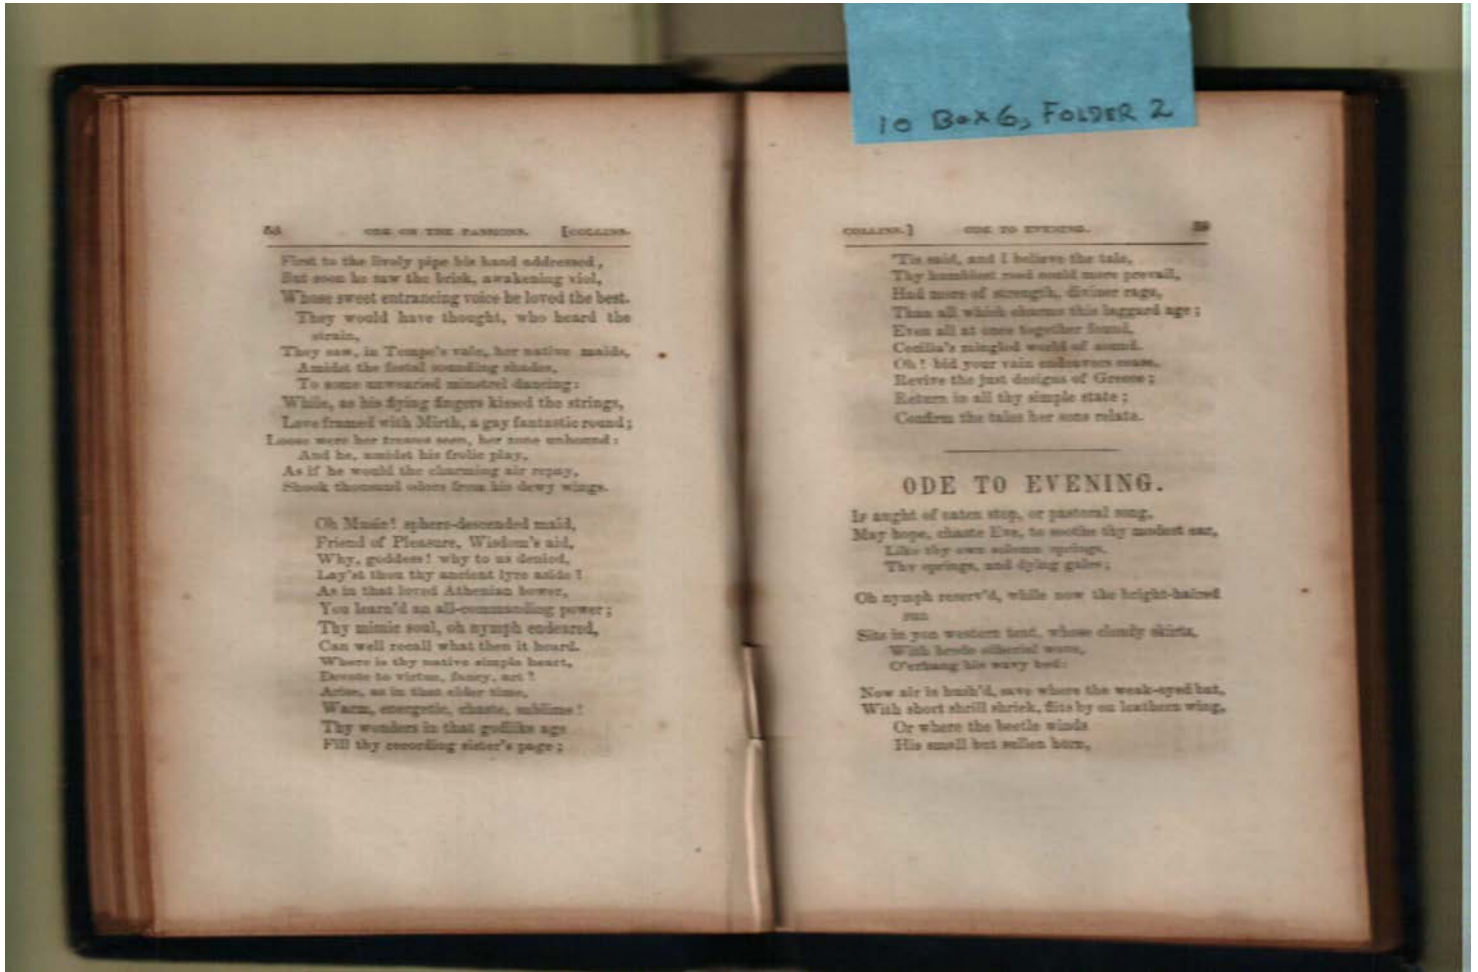 10 Box 6, FOLDER 2
ODE ON THE PASSIONS. [COLLINS.
First to the lively pipe his hand addressed,
But soon he saw the brisk, awakening viol,
Whose sweet entrancing voice he loved the best.
They would have thought, who heard the
strain,
They saw, in Tempe's vale, her native maids,
Amidst the festal sounding shades,
To some unwearied minstrel dancing:
While, as his flying fingers kissed the strings,
Love framed with Mirth, a gay fantastic round;
Loose were her tresses seen, her zone unbound:
And he, amidst his frolic play,
As if he would the charming air repay,
Shook thousand odors from his dewy wings.
Oh Music! sphere-descended maid,
Friend of Pleasure, Wisdom's aid,
Why, goddess! why to us denied,
Lay'st thou thy ancient lyre aside?
As in that loved Athenian bower,
You learn'd an all-commanding power;
Thy mimic soul, oh nymph endeared,
Can well recall what then it heard.
Where is thy native simple heart,
Devote to virtue, fancy, art?
Arise, as in that elder time,
Warm, energetic, chaste, sublime!
Thy wonders in that godlike age
Fill thy recording sister's page;
COLLINS.] ODE TO EVENING. 59
'Tis said, and I believe the tale,
Thy humblest reed could more prevail,
Had more of strength, diviner rage,
Than all which charms this laggard age;
Even all at once together found,
Cecilia's mingled world of sound.
Oh! bid your vain endeavors cease,
Revive the just designs of Greece;
Return in all thy simple state;
Confirm the tales her sons relate.
ODE TO EVENING.
If aught of oaten stop, or pastoral song,
May hope, chaste Eve, to soothe thy modest ear,
Like thy own solemn springs,
Thy springs, and dying gales;
Oh nymph reserv'd, while now the bright-haired
sun
Sits in yon western tent, whose cloudy skirts,
With brede etherial wove,
O'erhang his wavy bed:
Now air is hush'd, save where the weak-eyed bat,
With short shrill shriek, flits by on leathern wing,
Or where the beetle winds
His small but sullen horn,